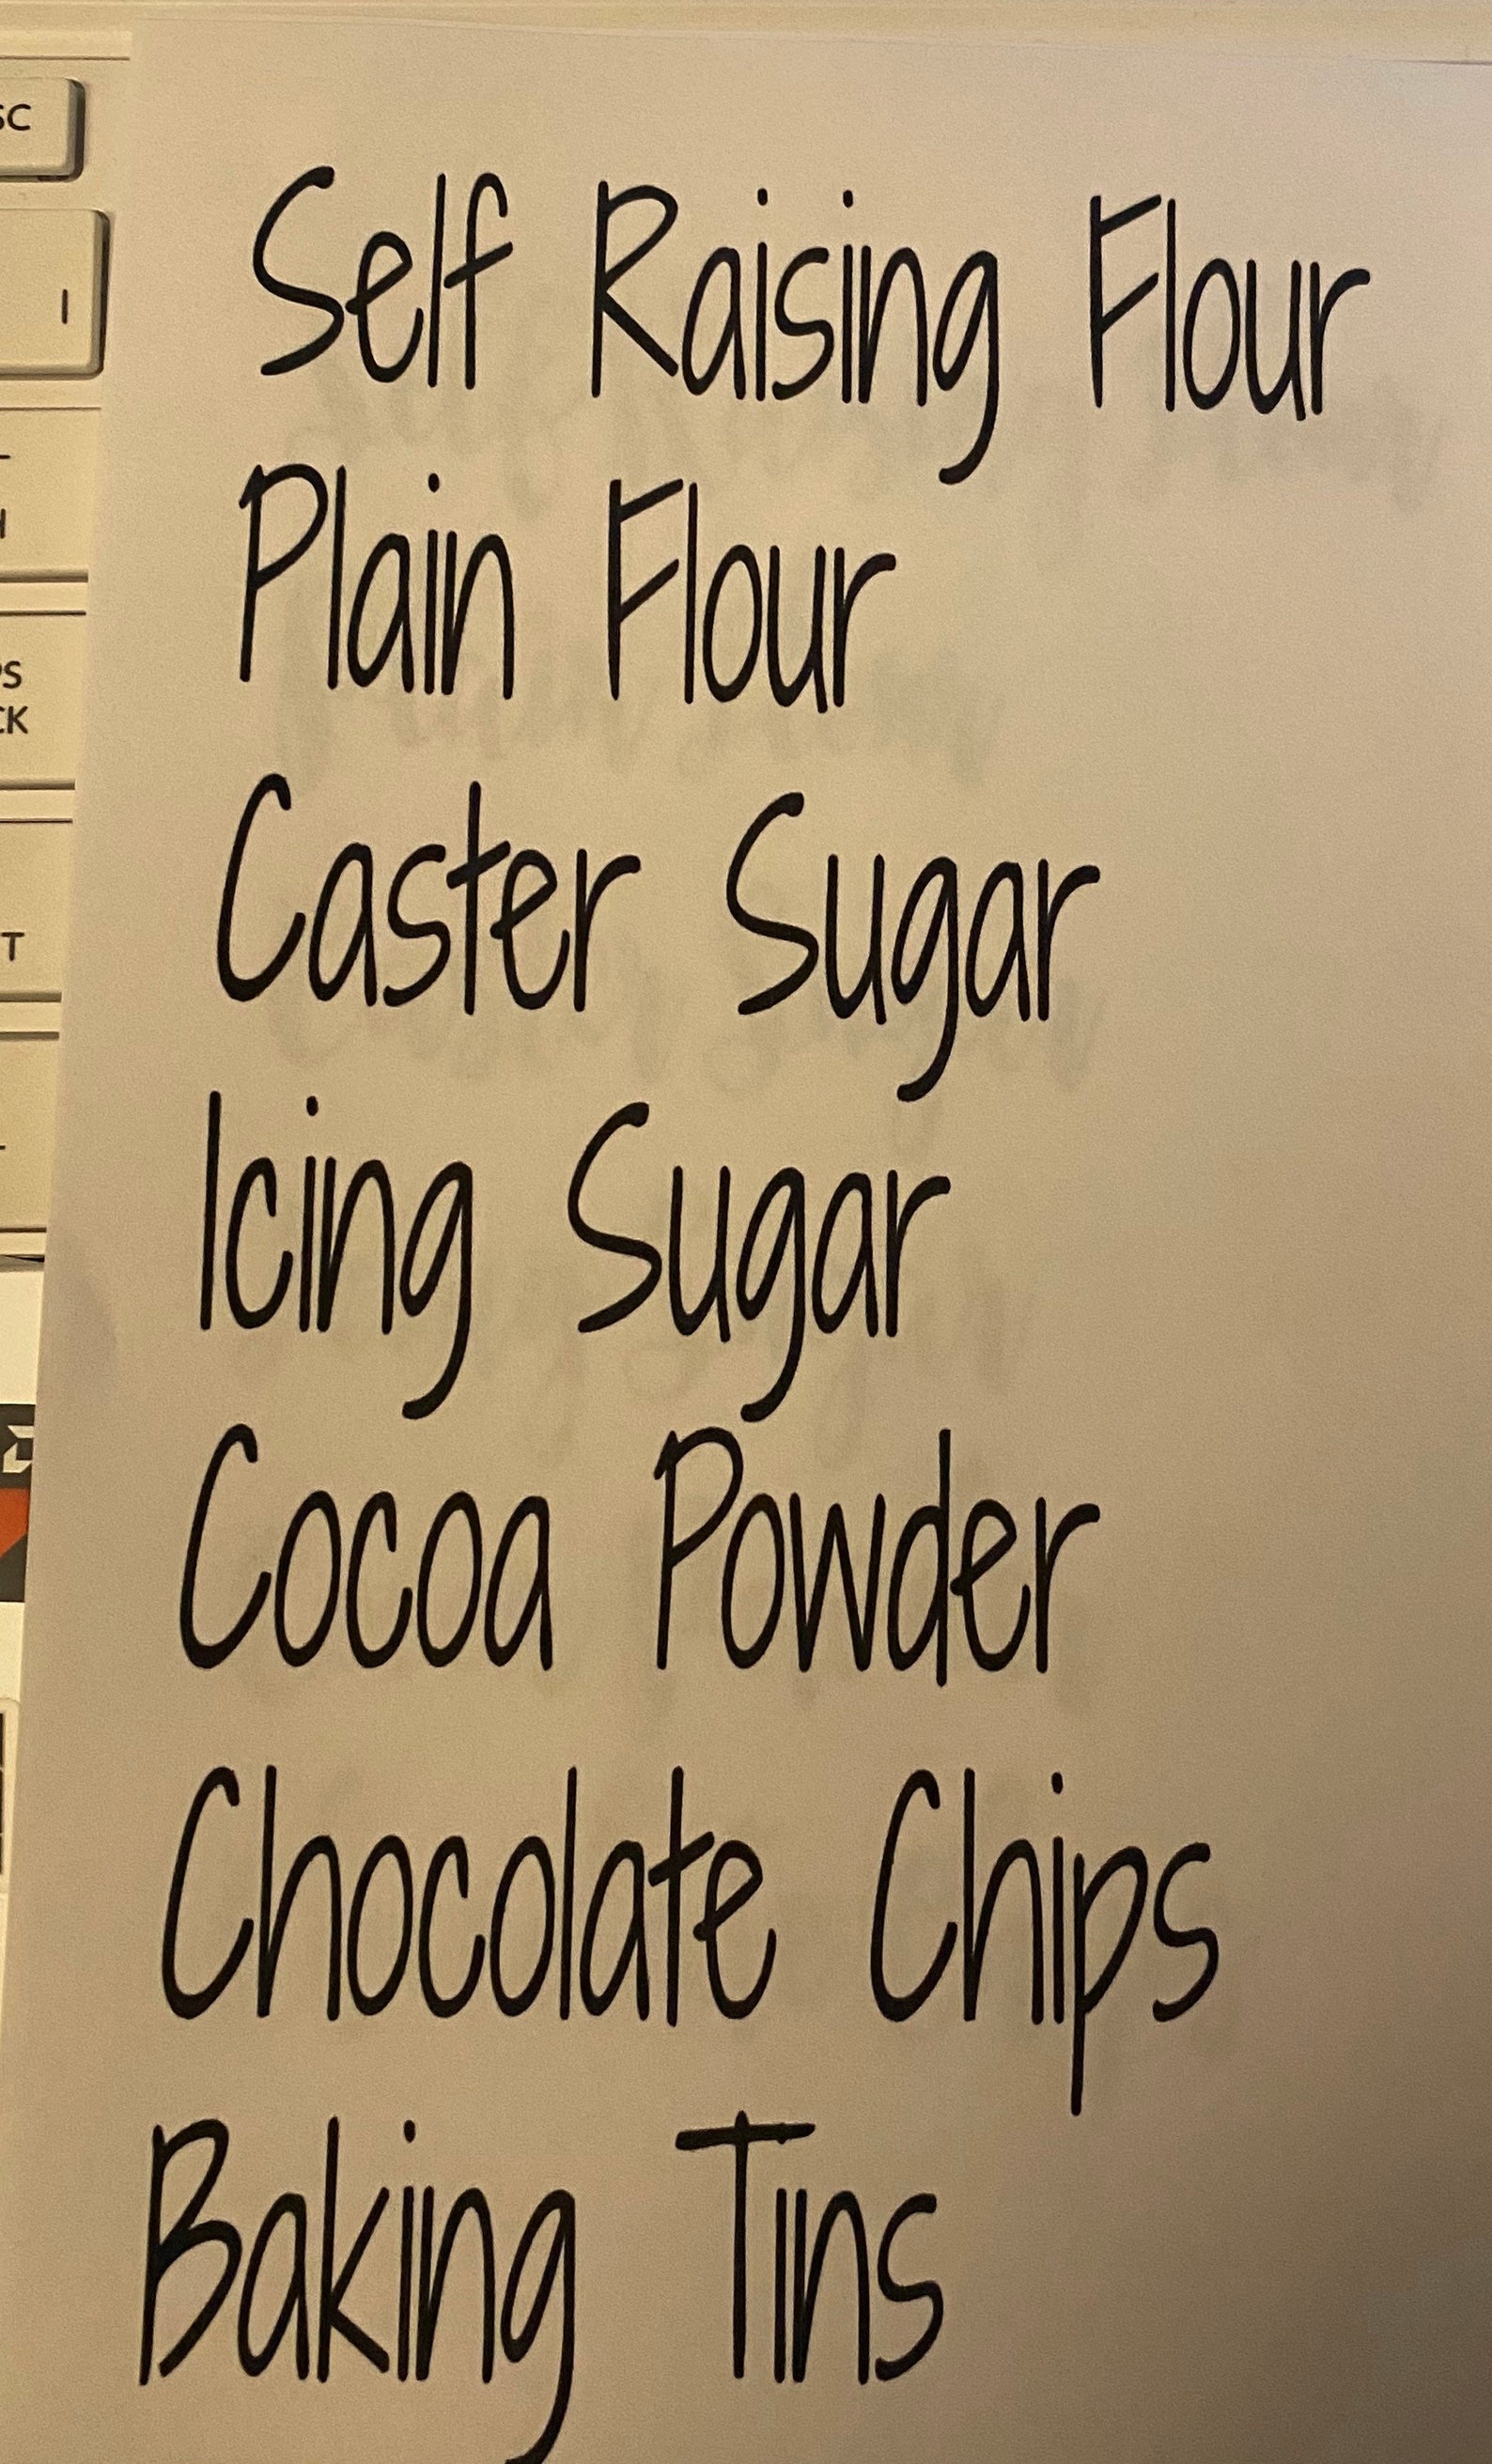 Self Raising Flour
Plain Flour
Caster Sugar
Icing Sugar
Cocoa Powder
Chocolate Chips
Baking Tins